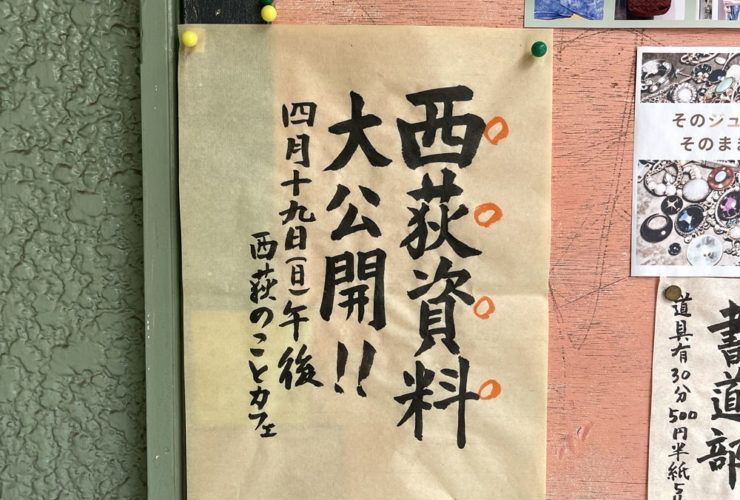 西荻資料
大公開!!
四月十九日(日)午後
西荻のことカフェ
そのジュ
そのまま
書道部
道具有30分500円半紙5